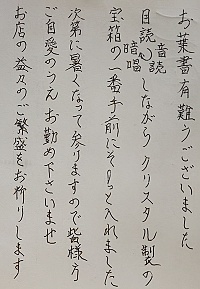 お葉書有難うございました
目読音読暗唱しながらクリスタル製の
宝箱の一番手前にそっと入れました
次第に暑くなって参りますので皆様方
ご自愛のうえお勤め下さいませ
お店の益々のご繁盛をお祈りします